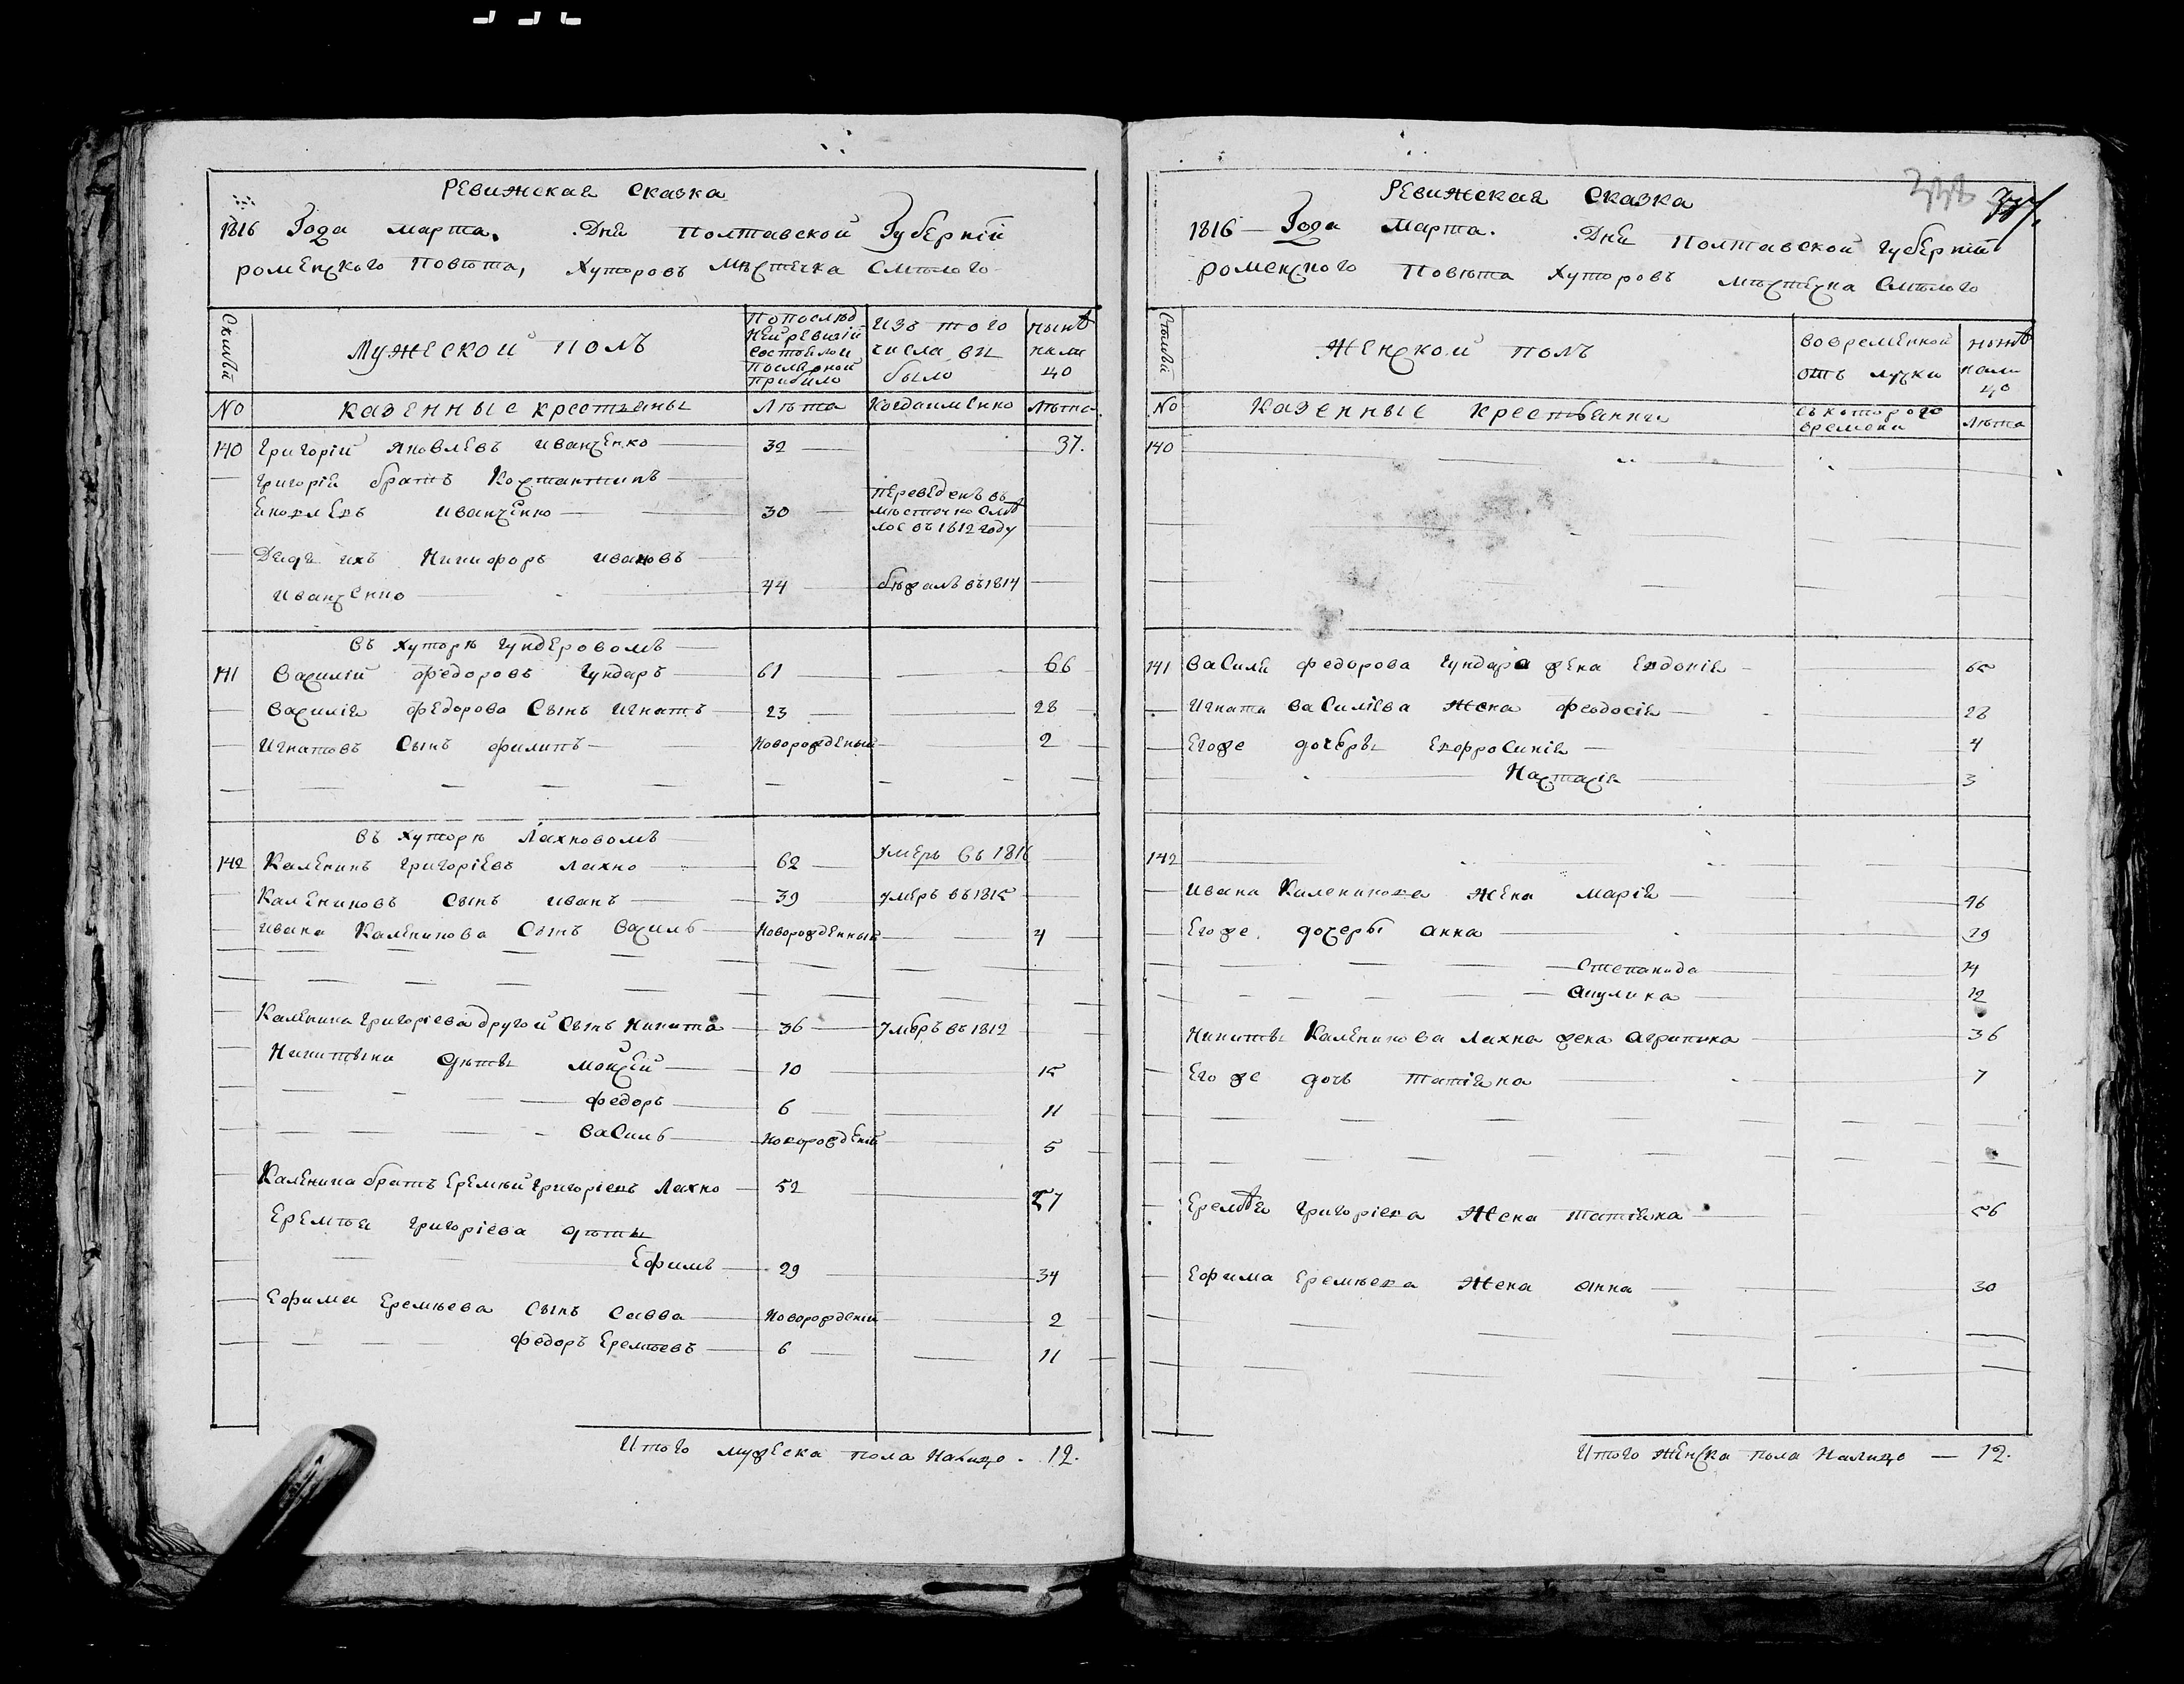 Ревижская сказка
1816 Года марта. Дня Полтавской Губерній
роменского Повѣта, Хуторовъ Мѣстечка Смѣлого
Мужеской полъ
По послѣд
ней ревизій
состояло и
после оной
прибыло
изъ того
числа вы
было
нынѣ
нали
цо
No казенные крестьяны Лѣта Когда именно Лѣта
140 Григорій Яковлевъ Иванченко 32 37.
Григорія братъ Костантинъ
Яковлевъ Иванченко 30
переведенъ въ
мѣстечко Смѣ
лое въ 1812 году
Дядя ихъ Никифоръ Ивановъ
Иванченко 44 бѣжалъ въ 1814
въ Хуторѣ Гундеровомъ
141 Василій Федоровъ Гундаръ 61 66
Василія Федорова Сынъ Игнатъ 23 28
Игнатовъ Сынъ Филипъ Новорожденый 2
въ Хуторѣ Лахновомъ
142 Каленикъ Григоріевъ Лахно 62 Умеръ въ 1816
Калениковъ Сынъ Иванъ 39 умеръ въ 1815
Ивана Каленикова Сынъ Василь Новорожденный 4
Каленика Григоріева другой Сынъ Никита 36 умеръ въ 1812
Никитины дѣты Моисей 10 15
Федоръ 6 11
Василь Новорожденій 5
Каленика братъ Еремѣй Григоріевъ Лахно 52 57
Еремѣя Григоріева дѣты
Ефимъ 29 34
Ефима Еремѣева Сынъ Савва Новорожденій 2
Федоръ Еремѣевъ 6 11
Итого мужеска пола Налицо . 12.
377.
Ревижская Сказка
1816 Года Марта. Дня Полтавской Губерній
роменского Повѣта Хуторовъ мѣстечка Смѣлого
Женской полъ
во временной
отъ лучки
нынѣ
нали
цо
No Казенные Крестьянки
съ которого
времени
лѣта
140
141 Василя Федорова Гундара жена Евдокія 65
Игната Василіева Жена Феодосія 28
Его же дочеры Евфросинія 4
Настасія 3
142
Ивана Каленикова Жена Марія 46
Его же дочеры Анна 29
Степанида 14
Акулина 12
Никиты Каленикова Лахна жена Агрипина 36
Его же дочь татіяна 7
Еремѣя Григоріева Жена татіяна 56
Ефима Еремѣева Жена Анна 30
Итого Женска пола Налицо — 12.